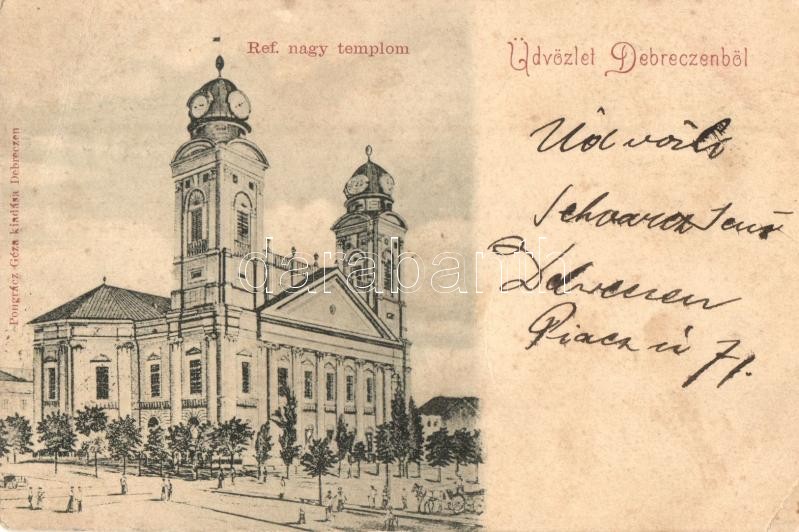 Ref. nagy templom
Üdvözlet Debreczenből
Pongrácz Géza kiadása Debreczen
Üdvözli
Schwarcz Jenő
Debreczen
Piacz u 71.
darabanth